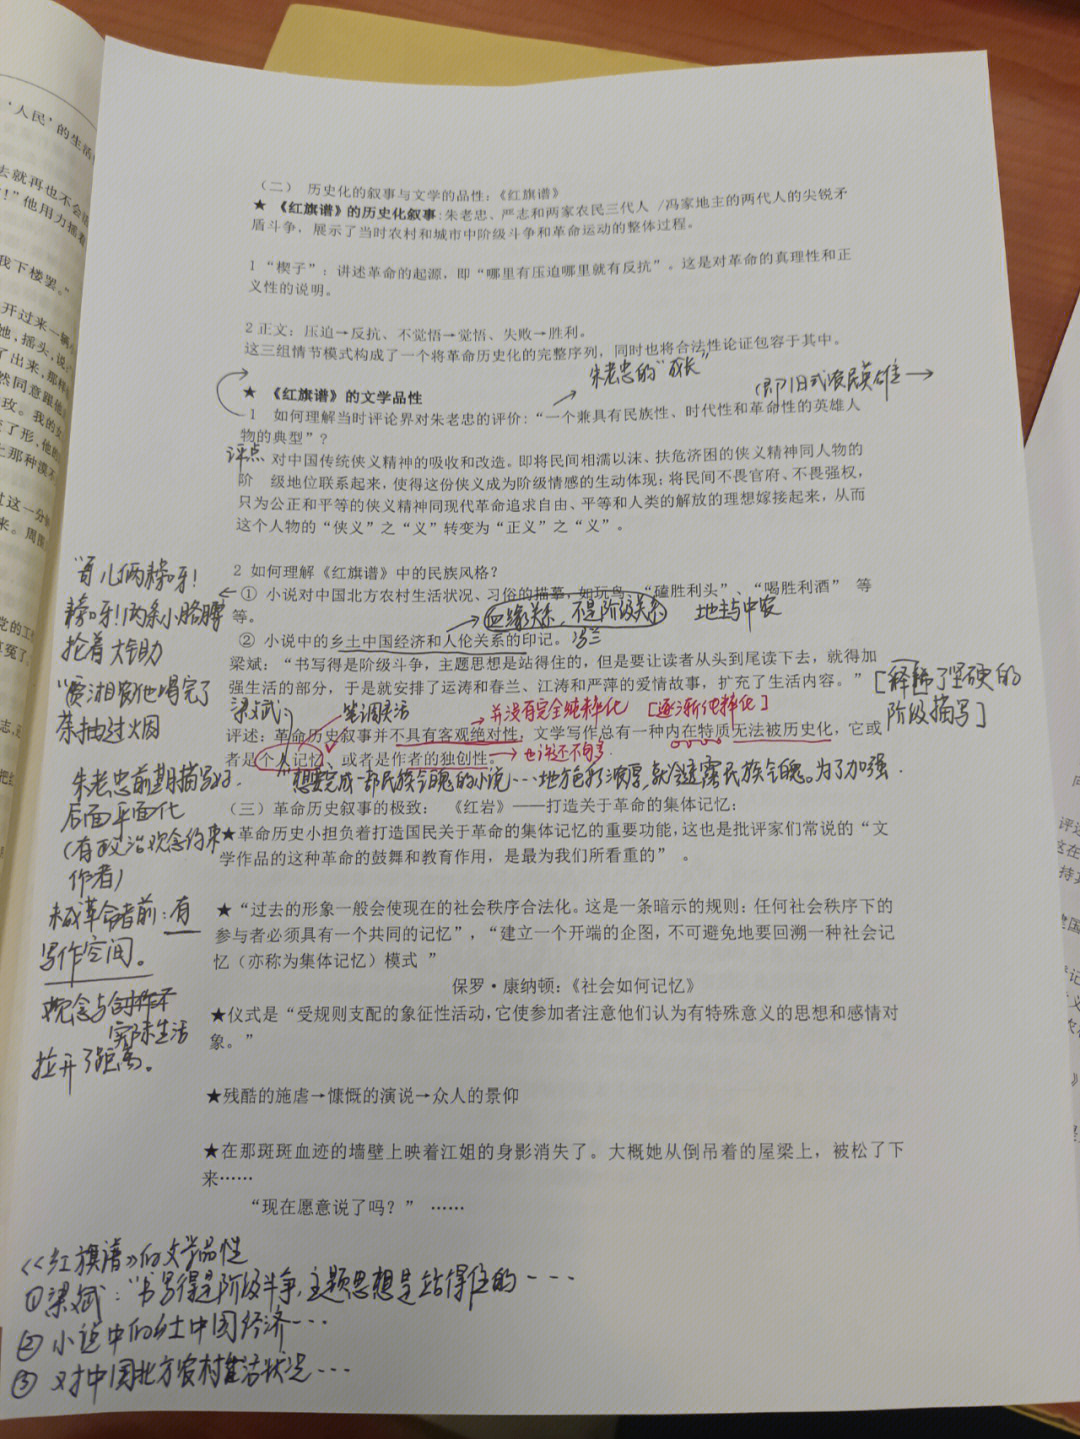 '人民'的生活
去就再也不会
！”他用力摇着
我下楼罢。”
（二） 历史化的叙事与文学的品性：《红旗谱》
★ 《红旗谱》的历史化叙事：朱老忠、严志和两家农民三代人 /冯家地主的两代人的尖锐矛
盾斗争，展示了当时农村和城市中阶级斗争和革命运动的整体过程。
1 “楔子”：讲述革命的起源，即“哪里有压迫哪里就有反抗”。这是对革命的真理性和正
义性的说明。
2 正文：压迫→反抗、不觉悟→觉悟、失败→胜利。
这三组情节模式构成了一个将革命历史化的完整序列，同时也将合法性论证包容于其中。
朱老忠的“成长”
（即旧式农民英雄→
★ 《红旗谱》的文学品性
1 如何理解当时评论界对朱老忠的评价：“一个兼具有民族性、时代性和革命性的英雄人
物的典型”？
评点 对中国传统侠义精神的吸收和改造。即将民间相濡以沫、扶危济困的侠义精神同人物的
阶 级地位联系起来，使得这份侠义成为阶级情感的生动体现；将民间不畏官府、不畏强权，
只为公正和平等的侠义精神同现代革命追求自由、平等和人类的解放的理想嫁接起来，从而
这个人物的“侠义”之“义”转变为“正义”之“义”。
2 如何理解《红旗谱》中的民族风格？
① 小说对中国北方农村生活状况、习俗的描摹，如玩鸟、“磕胜利头”、“喝胜利酒” 等
等。
血缘关系，不是阶级关系 地主与中农
② 小说中的乡土中国经济和人伦关系的印记。
梁斌：“书写得是阶级斗争，主题思想是站得住的，但是要让读者从头到尾读下去，就得加
强生活的部分，于是就安排了运涛和春兰、江涛和严萍的爱情故事，扩充了生活内容。”
[稀释了坚硬的
阶级描写]
梁斌 笔调灵活 并没有完全纯粹化 [逐渐纯粹化]
评述：革命历史叙事并不具有客观绝对性，文学写作总有一种内在特质无法被历史化，它或
者是个人记忆、或者是作者的独创性。
也许还不自身
想要完成一部民族令魄的小说……地方色彩浓厚，就会透露民族令魄。为了加强.
“哥儿俩
两条小胳膊
抡着大铲助
他喝完了
茶抽过烟
朱老忠前期描写好.
后面平面化
（有政治观念约束
作者）
未成革命者前：有
写作空间。
观念与创作不
实际生活
拉开了距离。
（三）革命历史叙事的极致： 《红岩》——打造关于革命的集体记忆：
★革命历史小担负着打造国民关于革命的集体记忆的重要功能，这也是批评家们常说的“文
学作品的这种革命的鼓舞和教育作用，是最为我们所看重的” 。
★“过去的形象一般会使现在的社会秩序合法化。这是一条暗示的规则：任何社会秩序下的
参与者必须具有一个共同的记忆”，“建立一个开端的企图，不可避免地要回溯一种社会记
忆（亦称为集体记忆）模式 ”
保罗·康纳顿：《社会如何记忆》
★仪式是“受规则支配的象征性活动，它使参加者注意他们认为有特殊意义的思想和感情对
象。”
★残酷的施虐→慷慨的演说→众人的景仰
★在那斑斑血迹的墙壁上映着江姐的身影消失了。大概她从倒吊着的屋梁上，被松了下
来……
“现在愿意说了吗？” ……
《红旗谱》的文学品性
①梁斌：“书写得是阶级斗争，主题思想是站得住的---
②小说中的乡土中国经济---
③对中国北方农村生活状况---